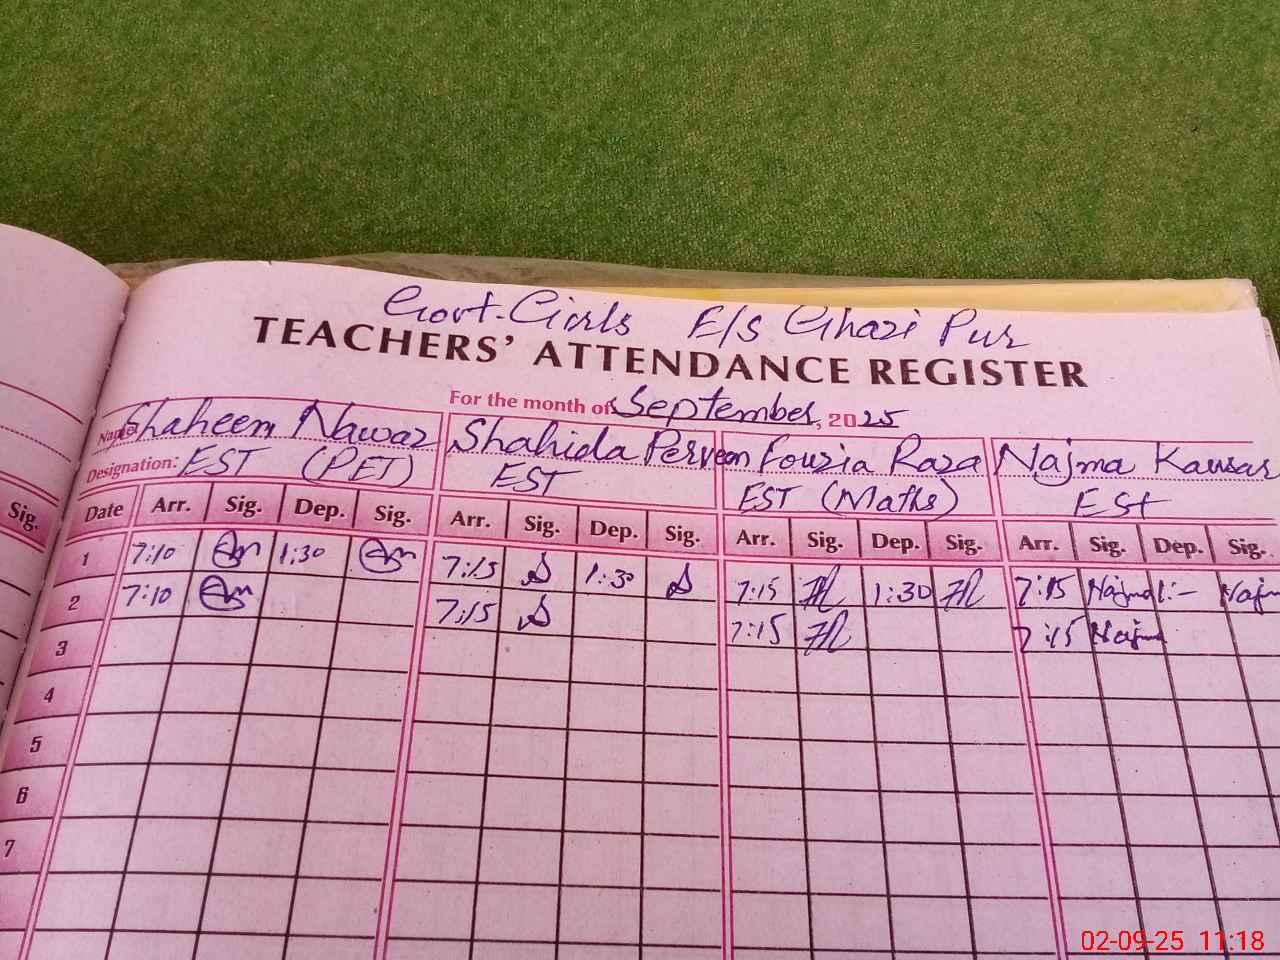 Govt. Girls E/S Ghazi Pur
TEACHERS' ATTENDANCE REGISTER
For the month of September, 2025
Name Shaheen Nawaz Shahida Perveen Fouzia Raza Najma Kausar
Designation: EST (PET) EST EST (Maths) EST
Sig. Date Arr. Sig. Dep. Sig. Arr. Sig. Dep. Sig. Arr. Sig. Dep. Sig. Arr. Sig. Dep. Sig.
1 7:10 1:30 7:15 1:30 7:15 1:30 7:15 Najma 1:- Najm
2 7:10 7:15 7:15 7:15 Najma
3
4
5
6
7
02-09-25 11:18